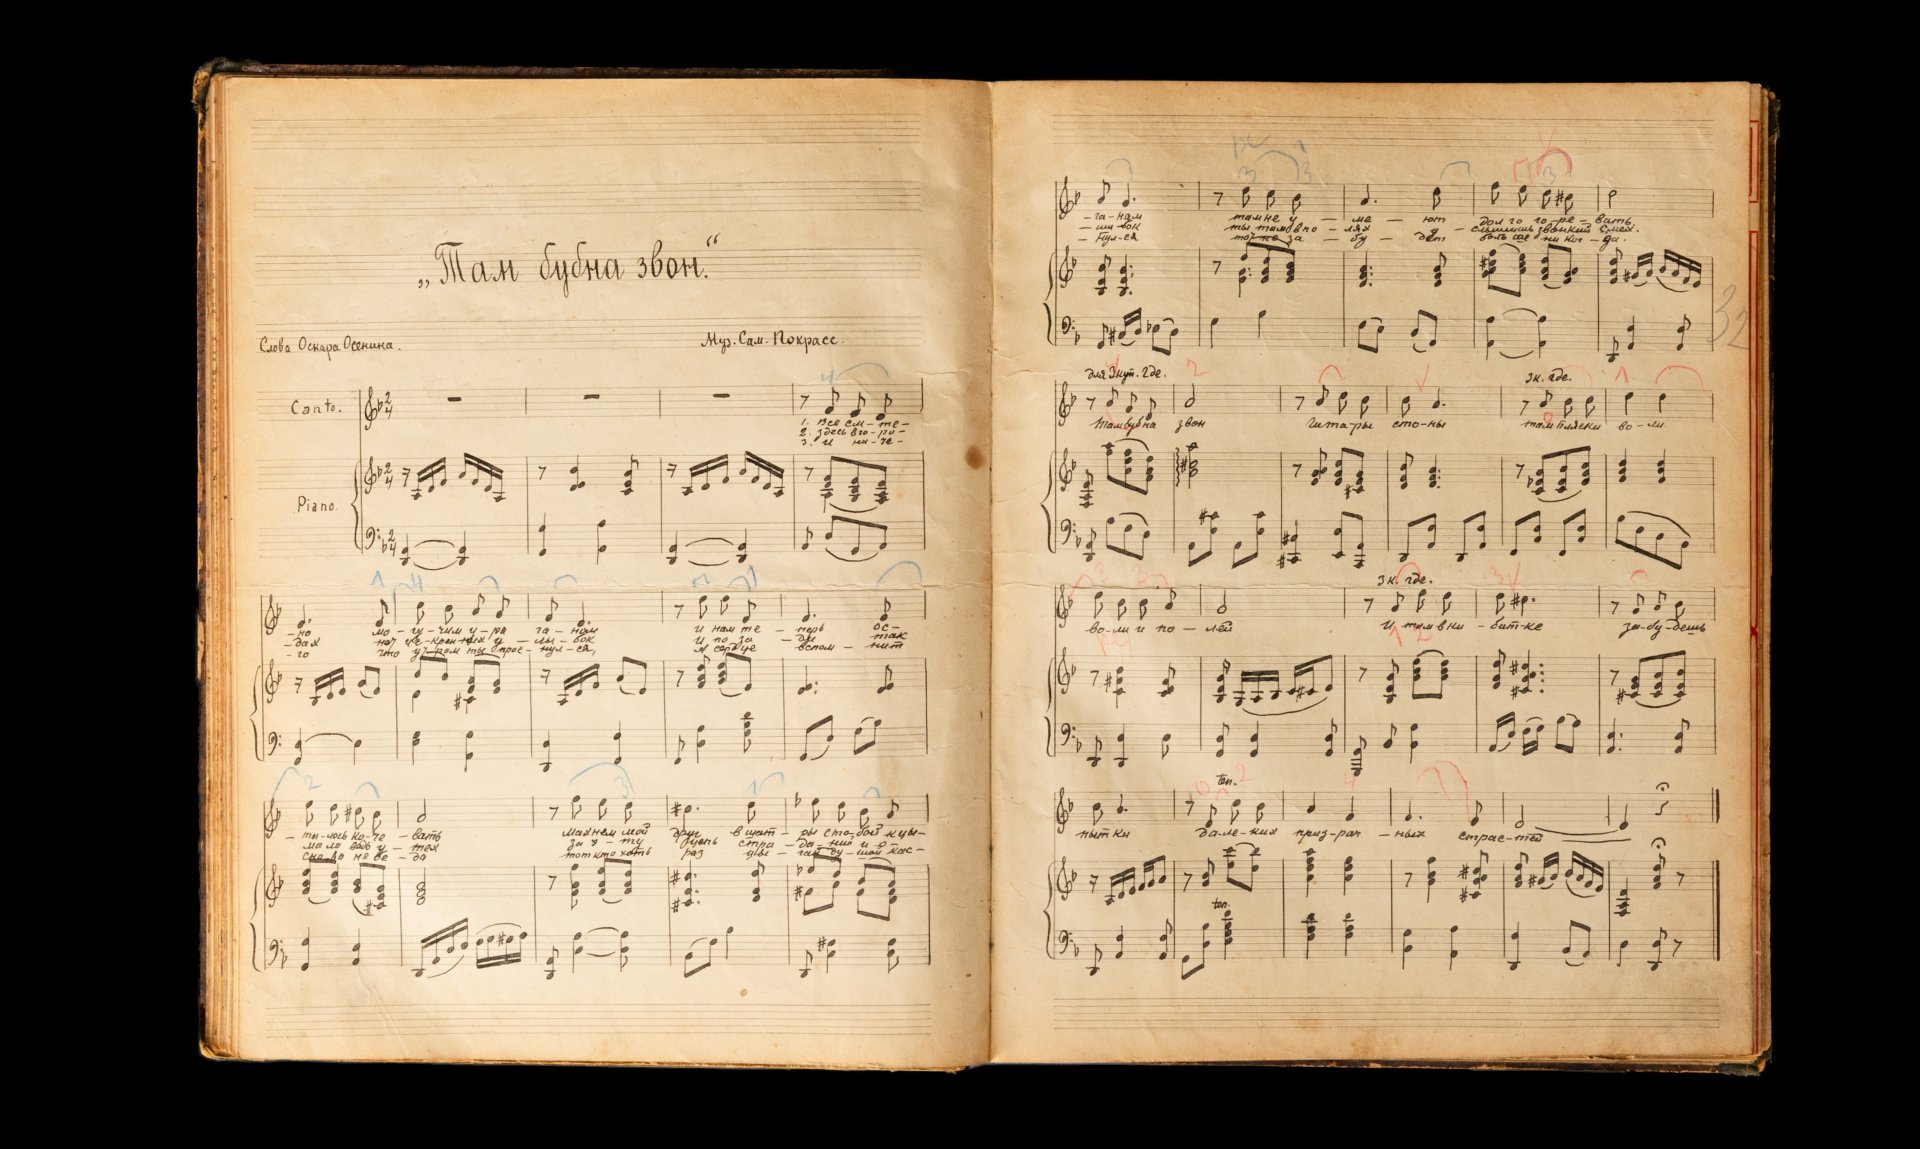 „Там бубна звон.“
Слова Оскара Осенина.
Муз. Сам. Покрасс.
Canto.
1. Все см-те-
2. Здесь в го-ро-
3. И ни-че-
Piano.
-но мо-гу-чим у-ра га-нам и нам те-перь ос-
-дах но у-лы-бок и по-за-ди так
-го что утром ты прос-нул-ся, и сердце вспом-нит
-та-лось ко-че-вать Махнем мой друг в шат-ры с то-бой к цы-
мало ведь у-тех за э-ту стра-да-ний и о-
сно-ва не бе-да тот кто хоть раз цы-
-га-нам там не у-ме-ют дол го го-ре-вать
-ши-бок ты там в по-лях у-слышишь звонкий смех.
-нул-ся тот не за-бу-дет боль ше ни ког-да.
32
для 3 куп. где.
3к. где.
Там бубна звон Гита-ры сто-ны там пляски во-ли
3к. где.
во-ли и по-лей И там в ки-бит-ке за-бу-дешь
ten.
пытки да-ле-ких приз-рач-ных страс-тей
ten.